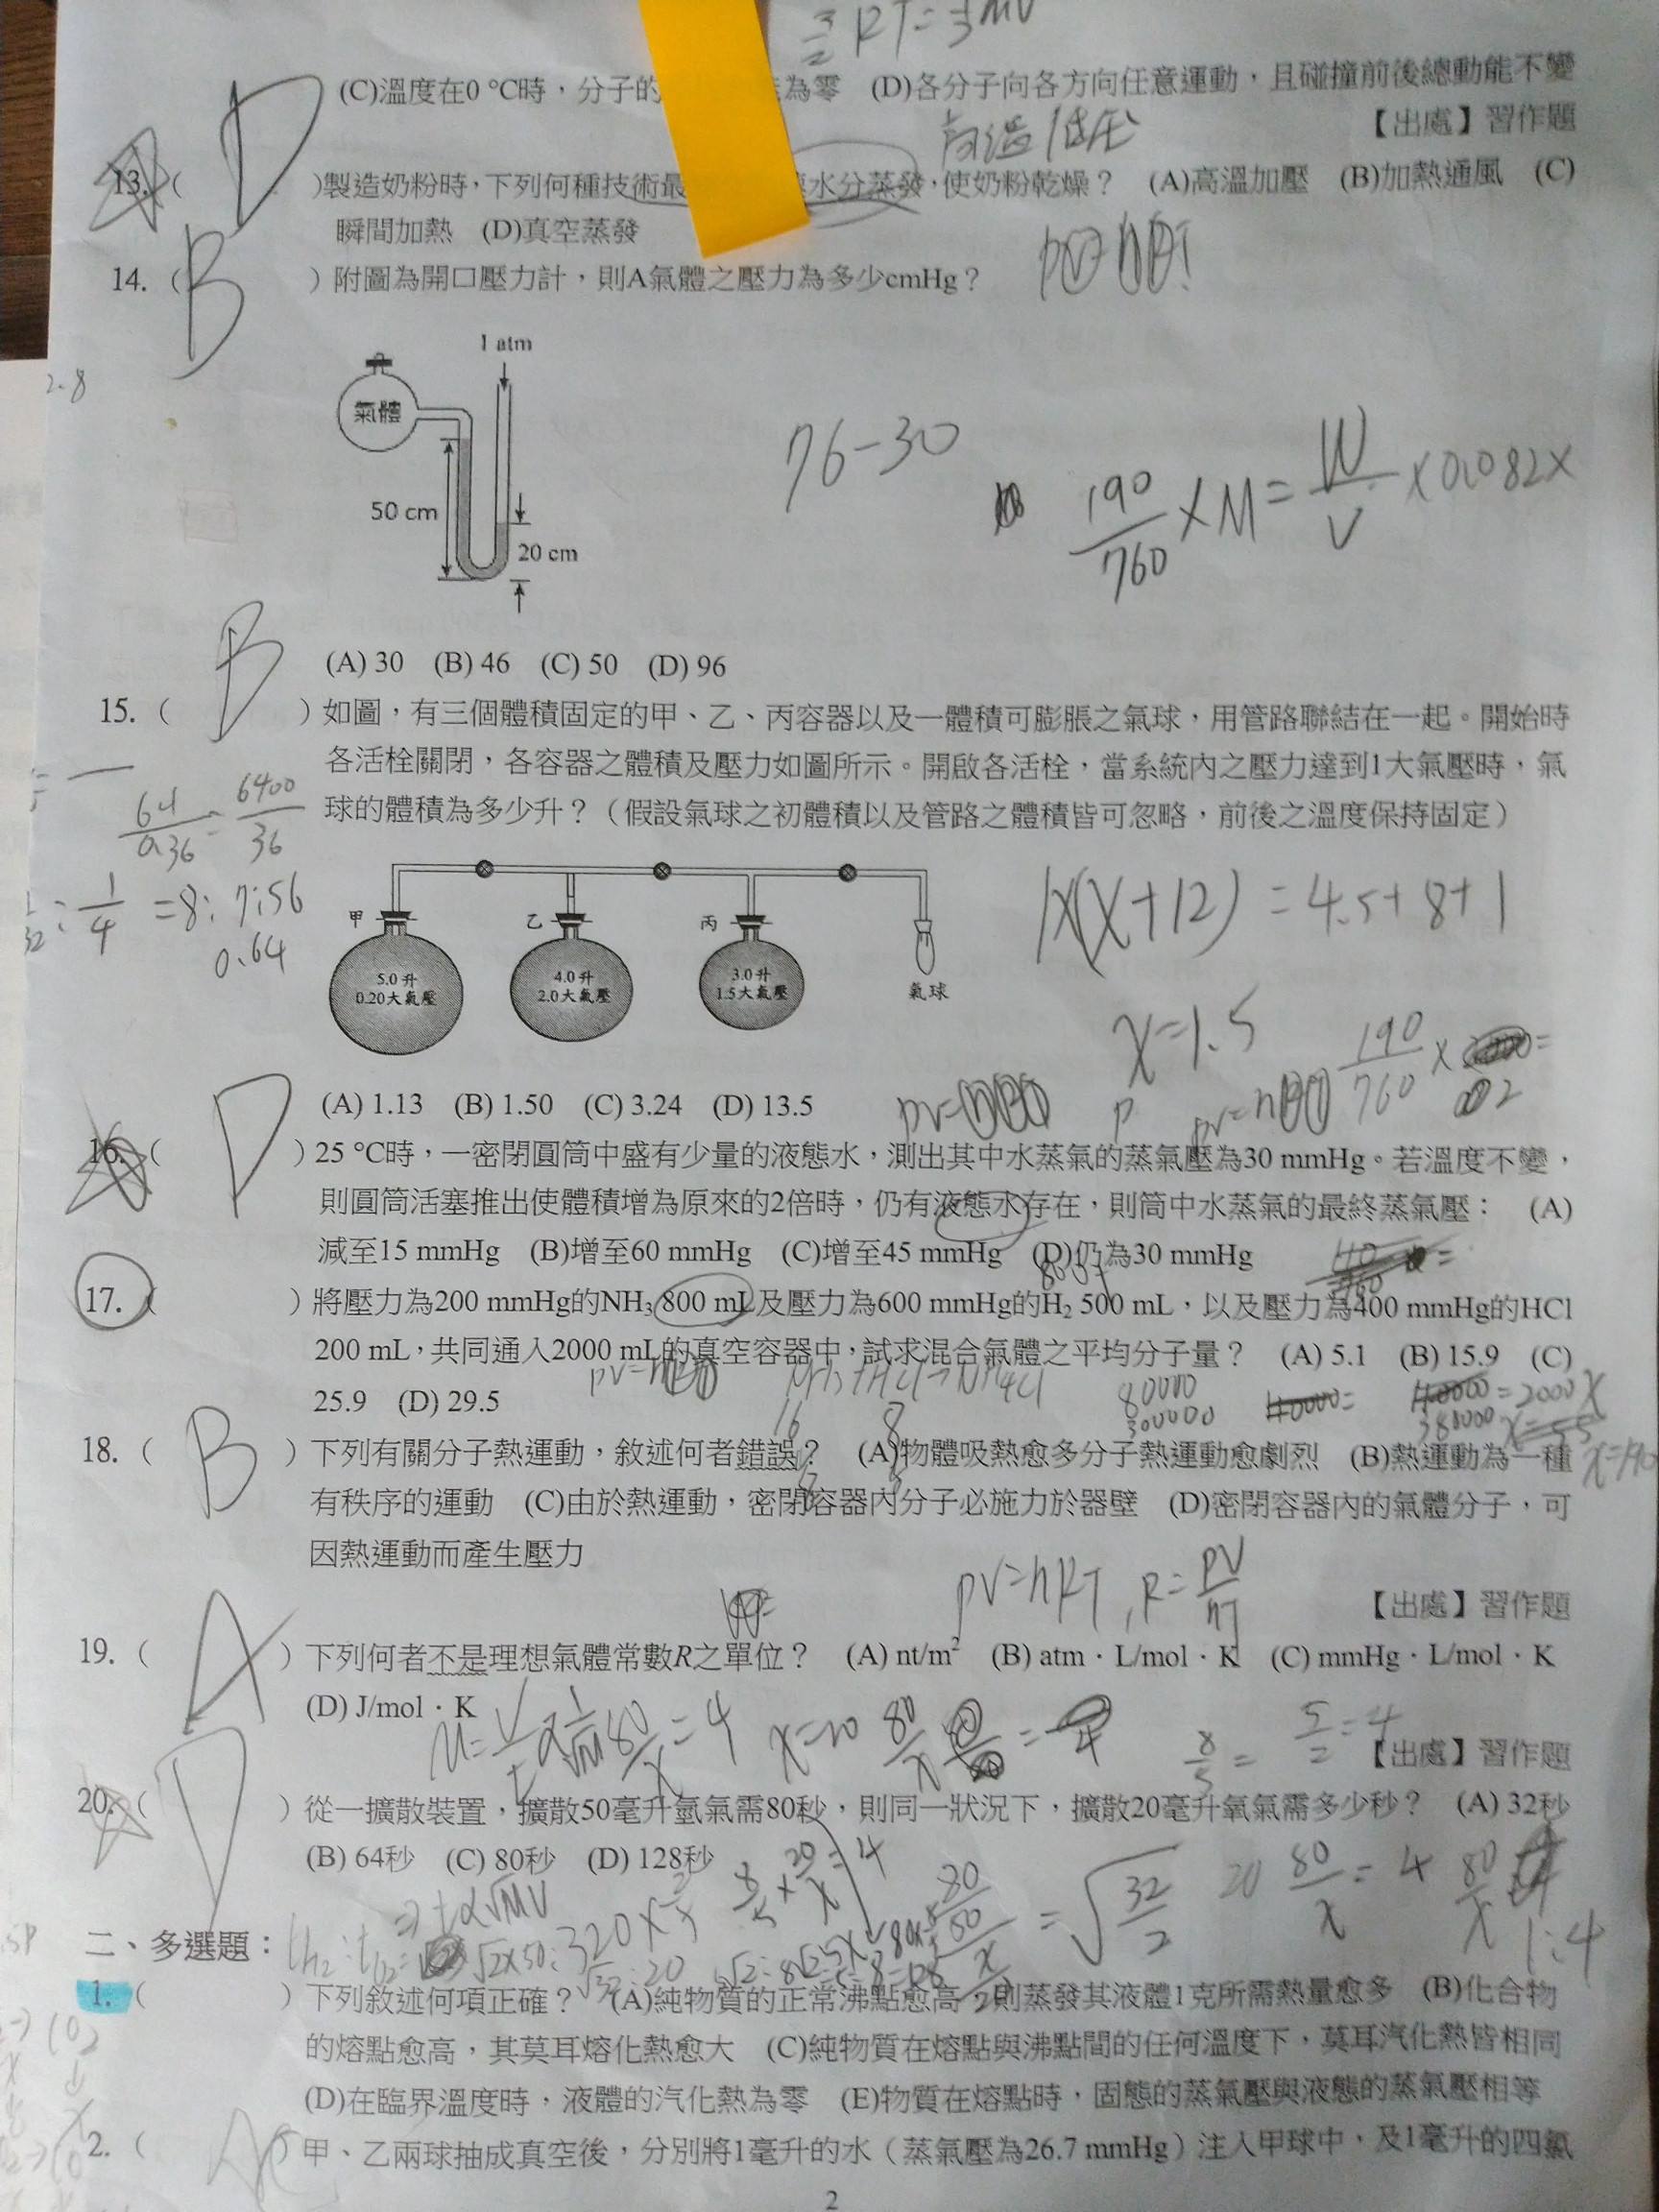 (C)溫度在0 °C時，分子的 為零 (D)各分子向各方向任意運動，且碰撞前後總動能不變
【出處】習作題
D
13. ( )製造奶粉時，下列何種技術最 水分蒸發，使奶粉乾燥？ (A)高溫加壓 (B)加熱通風 (C)
瞬間加熱 (D)真空蒸發
B
14. ( )附圖為開口壓力計，則A氣體之壓力為多少cmHg？
1 atm
氣體
50 cm
20 cm
76-30
190/760 ×M= W/V ×0.082×
(A) 30 (B) 46 (C) 50 (D) 96
B
15. ( )如圖，有三個體積固定的甲、乙、丙容器以及一體積可膨脹之氣球，用管路聯結在一起。開始時
各活栓關閉，各容器之體積及壓力如圖所示。開啟各活栓，當系統內之壓力達到1大氣壓時，氣
球的體積為多少升？（假設氣球之初體積以及管路之體積皆可忽略，前後之溫度保持固定）
甲
5.0升
0.20大氣壓
乙
4.0升
2.0大氣壓
丙
3.0升
1.5大氣壓
氣球
1×(x+12) = 4.5+8+1
x=1.5
(A) 1.13 (B) 1.50 (C) 3.24 (D) 13.5
D
16. ( )25 °C時，一密閉圓筒中盛有少量的液態水，測出其中水蒸氣的蒸氣壓為30 mmHg。若溫度不變，
則圓筒活塞推出使體積增為原來的2倍時，仍有液態水存在，則筒中水蒸氣的最終蒸氣壓： (A)
減至15 mmHg (B)增至60 mmHg (C)增至45 mmHg (D)仍為30 mmHg
17. ( )將壓力為200 mmHg的NH₃ 800 mL及壓力為600 mmHg的H₂ 500 mL，以及壓力為400 mmHg的HCl
200 mL，共同通入2000 mL的真空容器中，試求混合氣體之平均分子量？ (A) 5.1 (B) 15.9 (C)
25.9 (D) 29.5
NH₃+HCl→NH₄Cl
80000
300000
B
18. ( )下列有關分子熱運動，敘述何者錯誤？ (A)物體吸熱愈多分子熱運動愈劇烈 (B)熱運動為一種
有秩序的運動 (C)由於熱運動，密閉容器內分子必施力於器壁 (D)密閉容器內的氣體分子，可
因熱運動而產生壓力
PV=nRT, R= PV/nT
【出處】習作題
A
19. ( )下列何者不是理想氣體常數R之單位？ (A) nt/m² (B) atm·L/mol·K (C) mmHg·L/mol·K
(D) J/mol·K
【出處】習作題
D
20. ( )從一擴散裝置，擴散50毫升氫氣需80秒，則同一狀況下，擴散20毫升氧氣需多少秒？ (A) 32秒
(B) 64秒 (C) 80秒 (D) 128秒
二、多選題：
1. ( )下列敘述何項正確？ (A)純物質的正常沸點愈高，則蒸發其液體1克所需熱量愈多 (B)化合物
的熔點愈高，其莫耳熔化熱愈大 (C)純物質在熔點與沸點間的任何溫度下，莫耳汽化熱皆相同
(D)在臨界溫度時，液體的汽化熱為零 (E)物質在熔點時，固態的蒸氣壓與液態的蒸氣壓相等
2. ( )甲、乙兩球抽成真空後，分別將1毫升的水（蒸氣壓為26.7 mmHg）注入甲球中，及1毫升的四氯
2